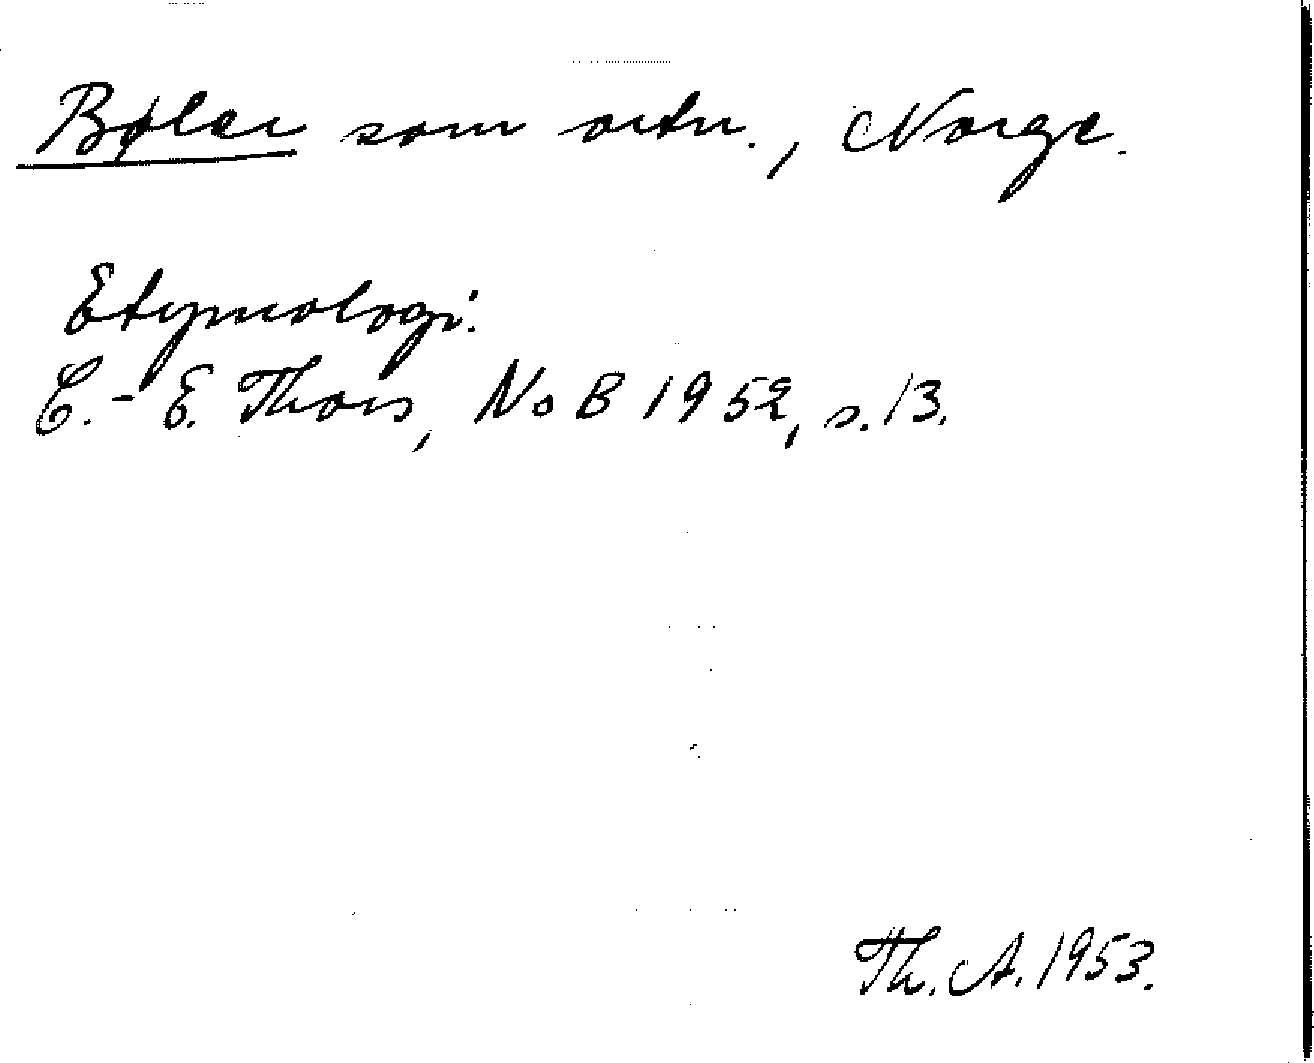 Bøler som ortn., Norge.
Etymologi.
C.-E. Thors, NoB 1952, s. 13.
Th. A. 1953.